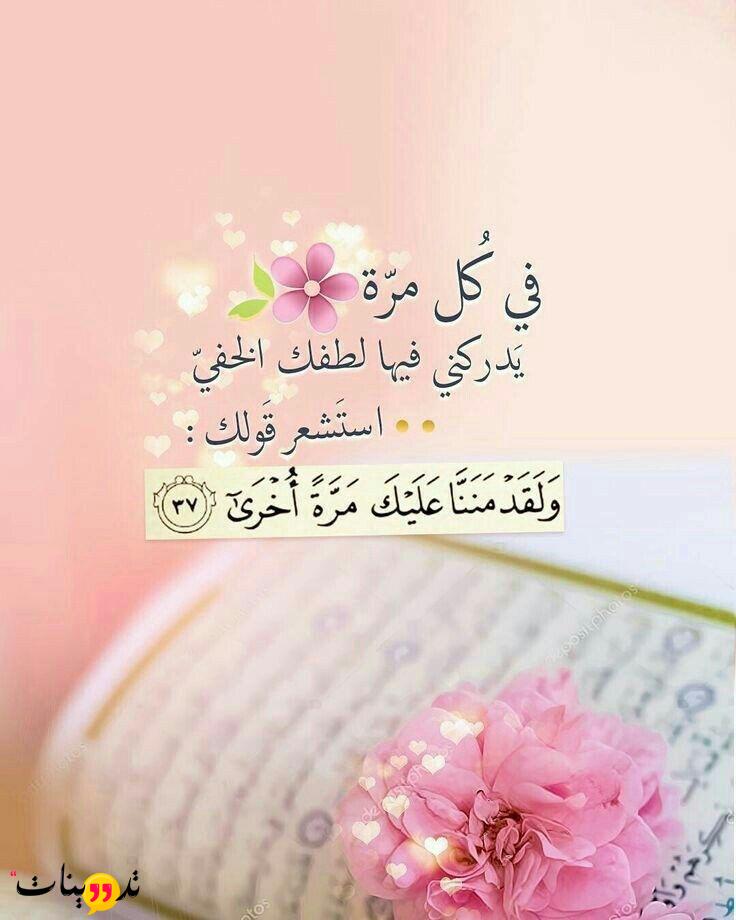 في كُل مرّة
يَدركني فيها لطفك الخفيّ
استَشعر قَولك :
وَلَقَدۡ مَنَنَّا عَلَيۡكَ مَرَّةً أُخۡرَىٰٓ ٣٧
تدوينات
depositphotos